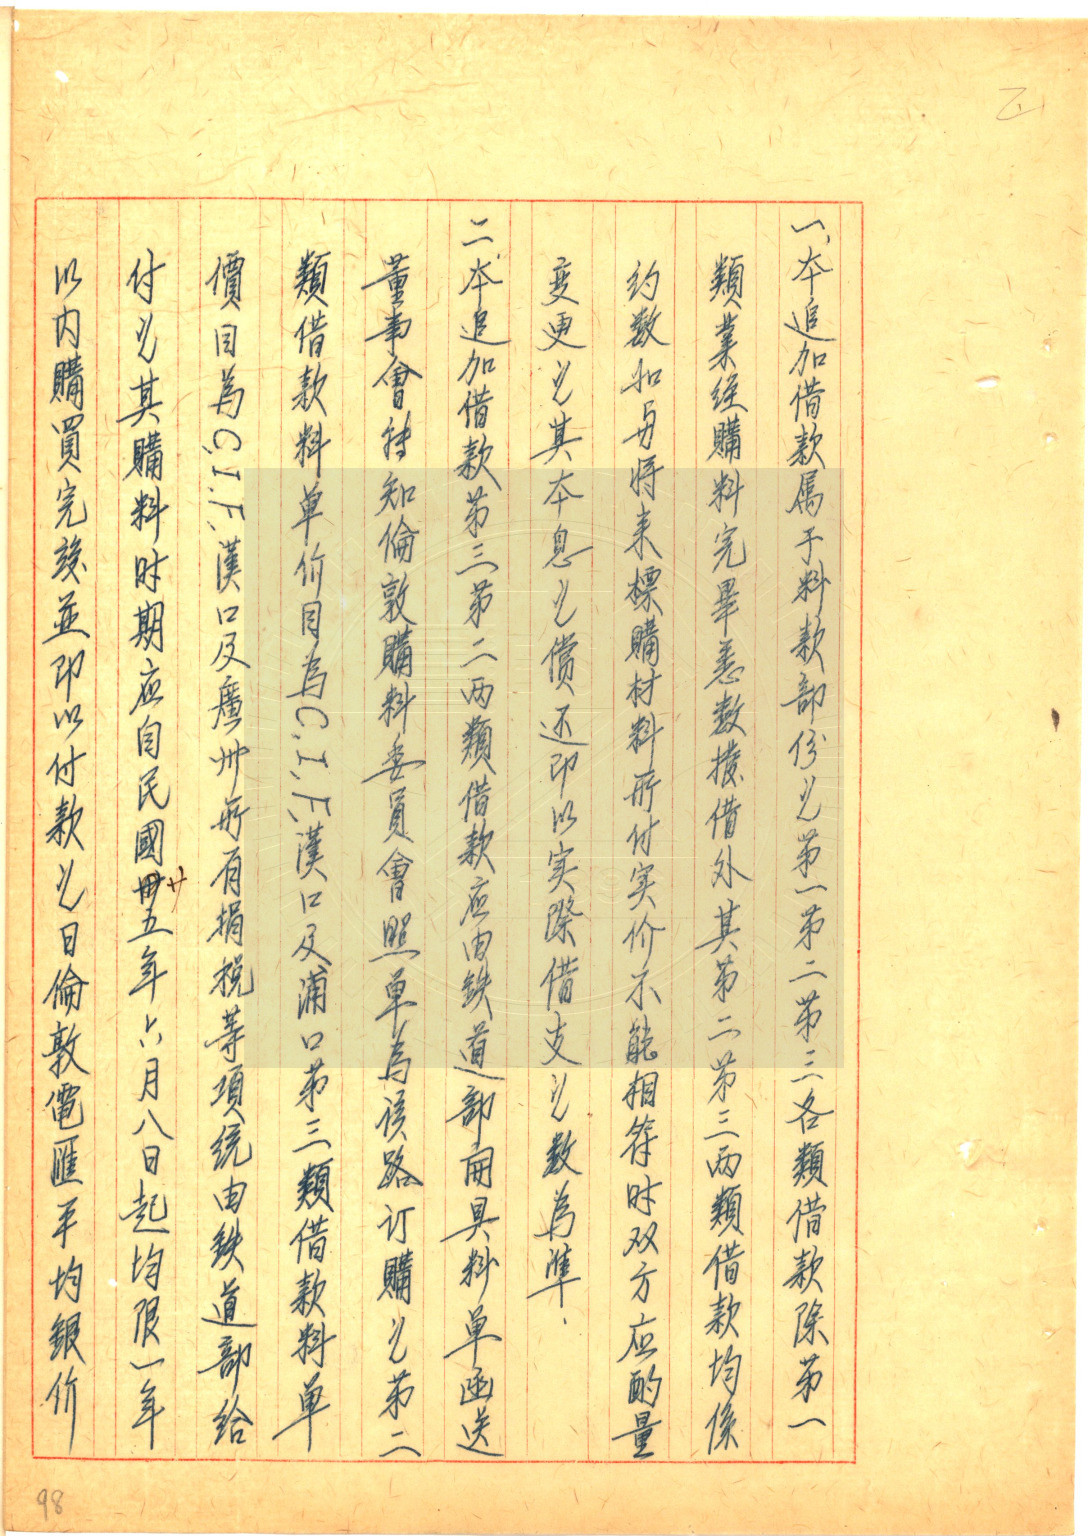 一、本追加借款属于料款部份之第一第二第三各類借款除第一
類業經購料完畢悉數撥借外其第二第三两類借款均係
约数如另将来標購材料所付实价不能相符时双方应酌量
变更之其本息之償还即以实際借支之数為準.
二、本追加借款第三第二两類借款应由铁道部開具料单函送
董事會轉知倫敦購料委員會照单為该路订購之第二
類借款料单价目為C.I.F.漢口及浦口第三類借款料单
價目為C.I.F.漢口及廣州所有捐税等項统由铁道部給
付之其購料时期应自民國廿五年六月八日起均限一年
以内購買完竣並即以付款之日倫敦電匯平均銀价
98